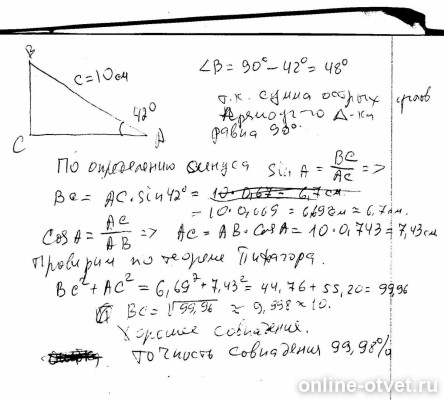 B
c=10см
42°
C
A
∠B = 90° - 42° = 48°
т.к. сумма острых углов
прямоуг-го Δ-ка
равна 90°.
По определению синуса Sin A = BC/AC =>
BC = AC · Sin 42° = 10 · 0,67 = 6,7 см.
= 10 · 0,669 = 6,692 см ≈ 6,7 см.
Cos A = AC/AB => AC = AB · Cos A = 10 · 0,743 = 7,43 см
Проверим по теореме Пифагора.
BC² + AC² = 6,69² + 7,43² = 44,76 + 55,20 = 99,96
BC = √99,96 ≈ 9,998 ≈ 10.
Хорошее совпадение.
Точность совпадения 99,98%
online-otvet.ru